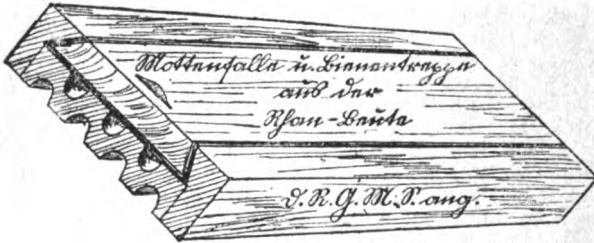 Mottenfalle u. Bienentreppe
aus der
Rhan-Beute
D.R.G.M.S. ang.